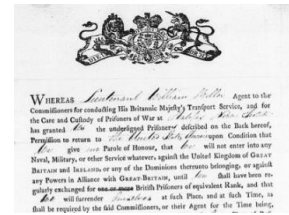 WHEREAS Lieutenant William Miller Agent to the
Commissioners for conducting His Britannic Majesty's Transport Service, and for
the Care and Custody of Prisoners of War at
has granted the undersigned Prisoner described on the Back hereof,
Permission to return to The United States upon Condition that
give Parole of Honour, that will not enter into any
Naval, Military, or other Service whatever, against the United Kingdom of GREAT
BRITAIN and IRELAND, or any of the Dominions thereunto belonging, or against
any Powers in Alliance with GREAT BRITAIN, until shall have been re-
gularly exchanged for one or more British Prisoners of equivalent Rank, and that
will surrender at such Place, and at such Time, as
shall be required by the said Commissioners, or their Agent for the Time being,